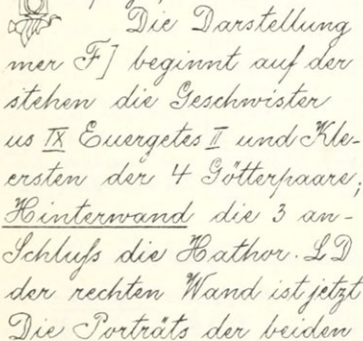 Die Darstellung
mer F] beginnt auf der
stehen die Geschwister
us IX Euergetes II und Kle-
ersten der 4 Götterpaare;
Hinterwand die 3 an-
Schluſs die Hathor. LD
der rechten Wand ist jetzt
Die Porträts der beiden